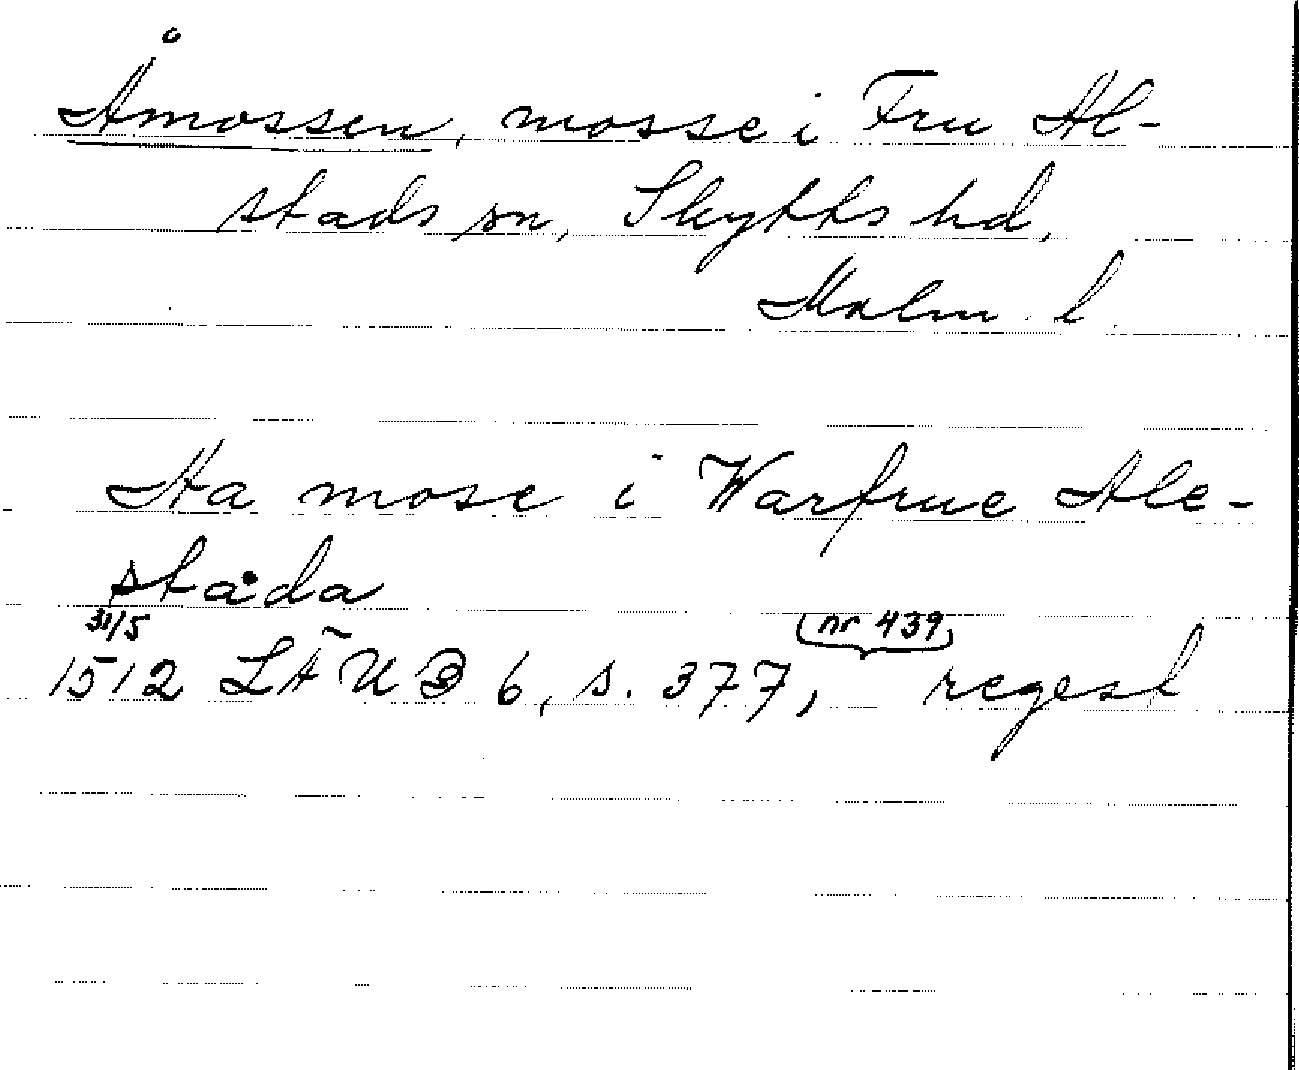 Åmossen, mosse i Fru Al-
stads sn, Skytts hd,
Malm. l.
Aa mose i Warfrue Ale-
stada
31/5 nr 439
1512 LÄUB 6, s. 377, regest